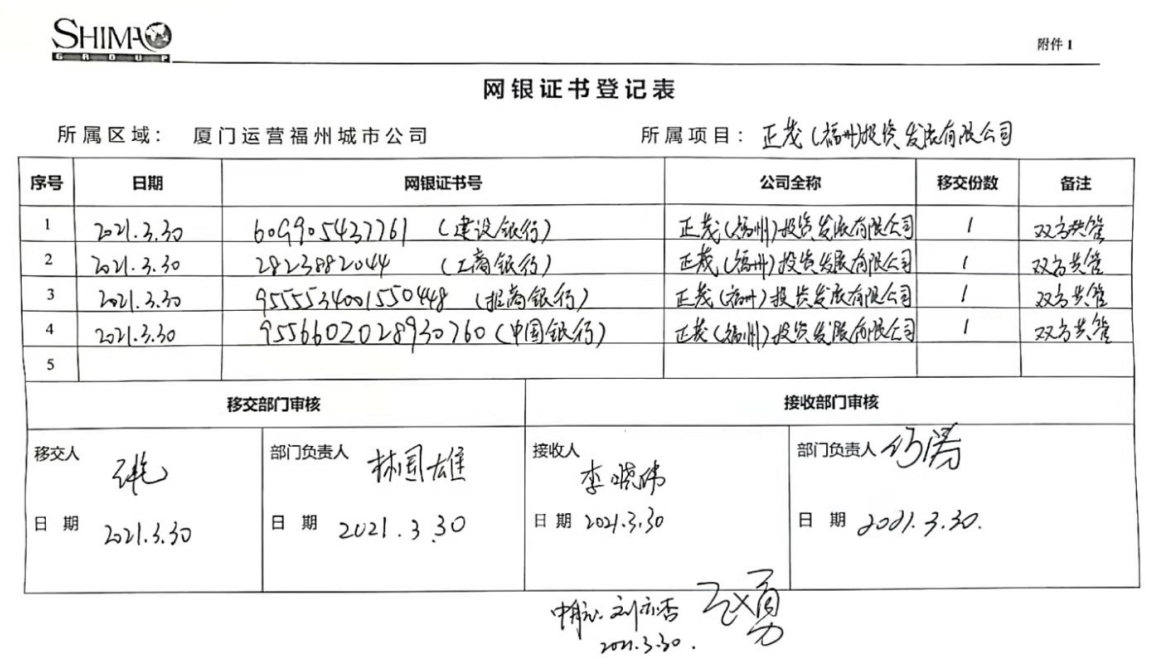 SHIMAO
GROUP
附件1
网银证书登记表
所属区域：厦门运营福州城市公司 所属项目：正茂(福州)投资发展有限公司
序号 日期 网银证书号 公司全称 移交份数 备注
1 2021.3.30 609905437761 (建设银行) 正茂(福州)投资发展有限公司 1 双方共管
2 2021.3.30 2823882044 (工商银行) 正茂(福州)投资发展有限公司 1 双方共管
3 2021.3.30 9555534001550448 (招商银行) 正茂(福州)投资发展有限公司 1 双方共管
4 2021.3.30 9556602028930760 (中国银行) 正茂(福州)投资发展有限公司 1 双方共管
5
移交部门审核 接收部门审核
移交人 部门负责人 林国雄 接收人 李晓伟 部门负责人
日期 2021.3.30 日期 2021.3.30 日期 2021.3.30 日期 2021.3.30.
刘亦杏
2021.3.30.